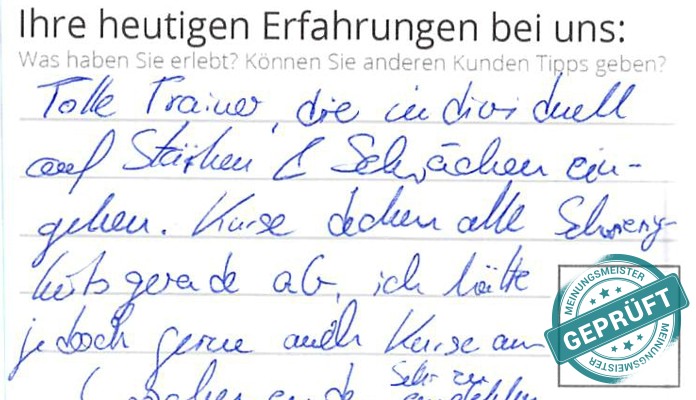 Ihre heutigen Erfahrungen bei uns:
Was haben Sie erlebt? Können Sie anderen Kunden Tipps geben?
Tolle Trainer, die individuell
auf Stärken & Schwächen ein-
gehen. Kurse decken alle Schwierig-
keitsgerade ab, ich hätte
jedoch gerne auch Kurse am
Wochenende. Sehr zu
empfehlen
MEINUNGSMEISTER
GEPRÜFT
MEINUNGSMEISTER